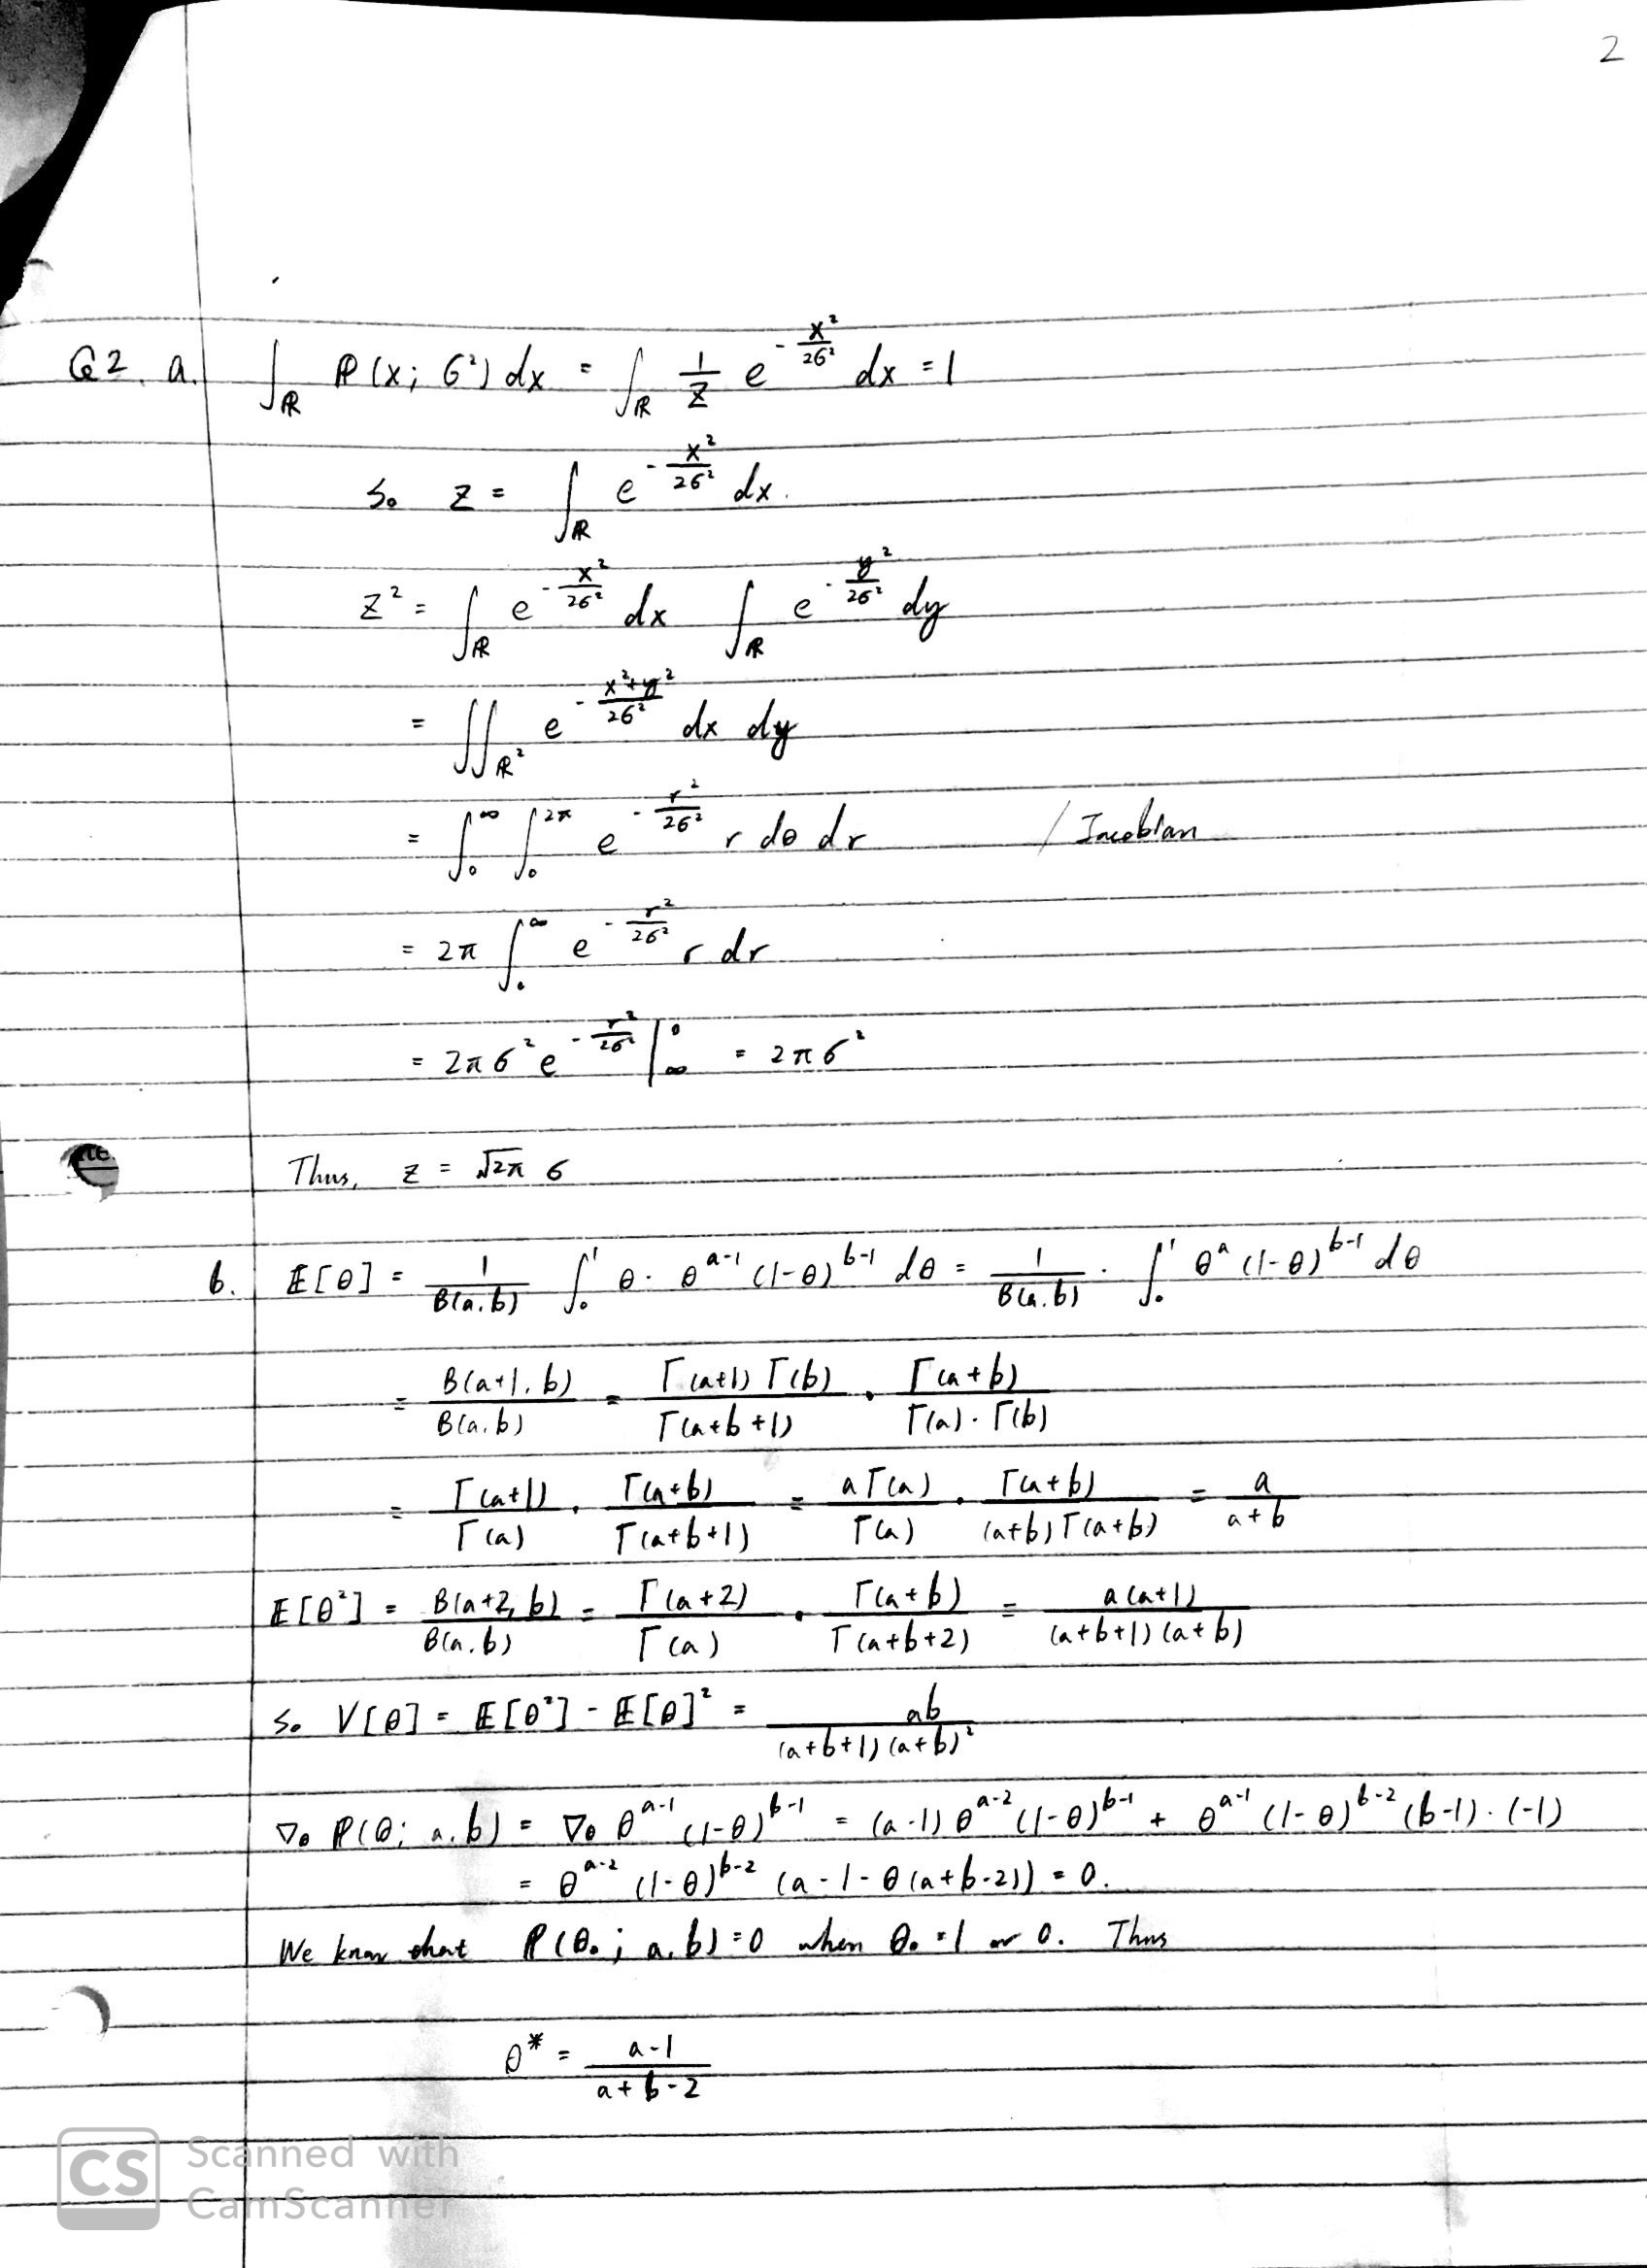 2
Q2. a. ∫_ℝ ℙ(x; σ²) dx = ∫_ℝ 1/Z e^{-x²/2σ²} dx = 1
So Z = ∫_ℝ e^{-x²/2σ²} dx.
Z² = ∫_ℝ e^{-x²/2σ²} dx ∫_ℝ e^{-y²/2σ²} dy
= ∬_ℝ² e^{-(x²+y²)/2σ²} dx dy
= ∫_0^∞ ∫_0^{2π} e^{-r²/2σ²} r dθ dr / Jacobian
= 2π ∫_0^∞ e^{-r²/2σ²} r dr
= 2πσ² e^{-r²/2σ²} |_∞^0 = 2πσ²
te
Thus, Z = √2π σ
b. 𝔼[θ] = 1/B(a,b) ∫_0^1 θ · θ^{a-1} (1-θ)^{b-1} dθ = 1/B(a,b) · ∫_0^1 θ^a (1-θ)^{b-1} dθ
= B(a+1, b)/B(a,b) = Γ(a+1) Γ(b)/Γ(a+b+1) · Γ(a+b)/Γ(a)·Γ(b)
= Γ(a+1)/Γ(a) · Γ(a+b)/Γ(a+b+1) = aΓ(a)/Γ(a) · Γ(a+b)/(a+b)Γ(a+b) = a/a+b
𝔼[θ²] = B(a+2, b)/B(a,b) = Γ(a+2)/Γ(a) · Γ(a+b)/Γ(a+b+2) = a(a+1)/(a+b+1)(a+b)
So V[θ] = 𝔼[θ²] - 𝔼[θ]² = ab/(a+b+1)(a+b)²
∇_θ ℙ(θ; a,b) = ∇_θ θ^{a-1} (1-θ)^{b-1} = (a-1) θ^{a-2} (1-θ)^{b-1} + θ^{a-1} (1-θ)^{b-2} (b-1)·(-1)
= θ^{a-2} (1-θ)^{b-2} (a-1-θ(a+b-2)) = 0.
We know that ℙ(θ₀; a,b) = 0 when θ₀ = 1 or 0. Thus
θ* = a-1/a+b-2
CS Scanned with
CamScanner